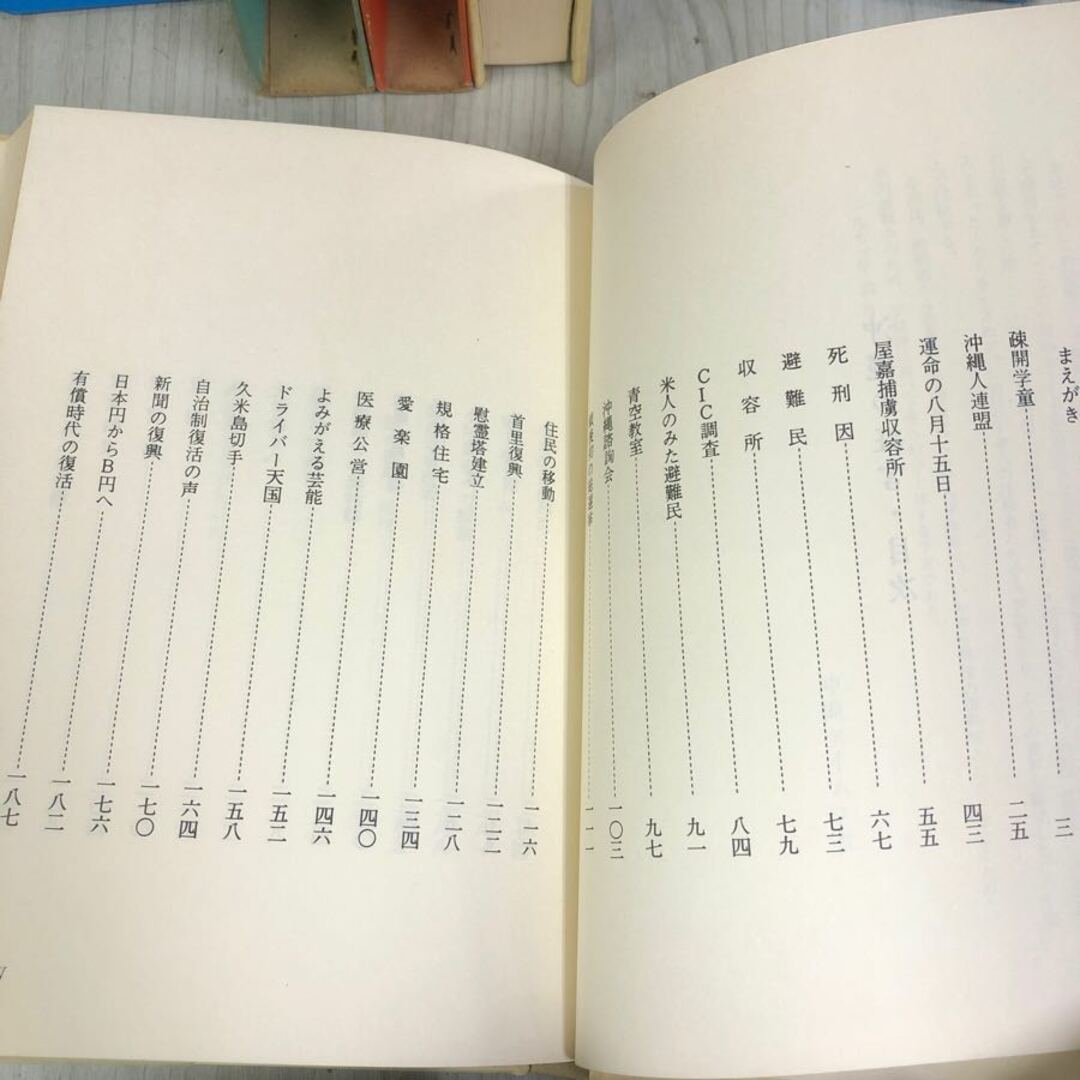 まえがき
疎開学童 三
沖縄人連盟 二五
運命の八月十五日 四三
屋嘉捕虜収容所 五五
死刑囚 六七
避難民 七三
収容所 七九
CIC調査 八四
米人のみた避難民 九一
青空教室 九七
沖縄諮詢会 一〇三
一一一
住民の移動 一一六
首里復興 一二二
慰霊塔建立 一二八
規格住宅 一三四
愛楽園 一四〇
医療公営 一四六
よみがえる芸能 一五二
ドライバー天国 一五八
久米島切手 一六四
自治制復活の声 一七〇
新聞の復興 一七六
日本円からB円へ 一八二
有償時代の復活 一八七